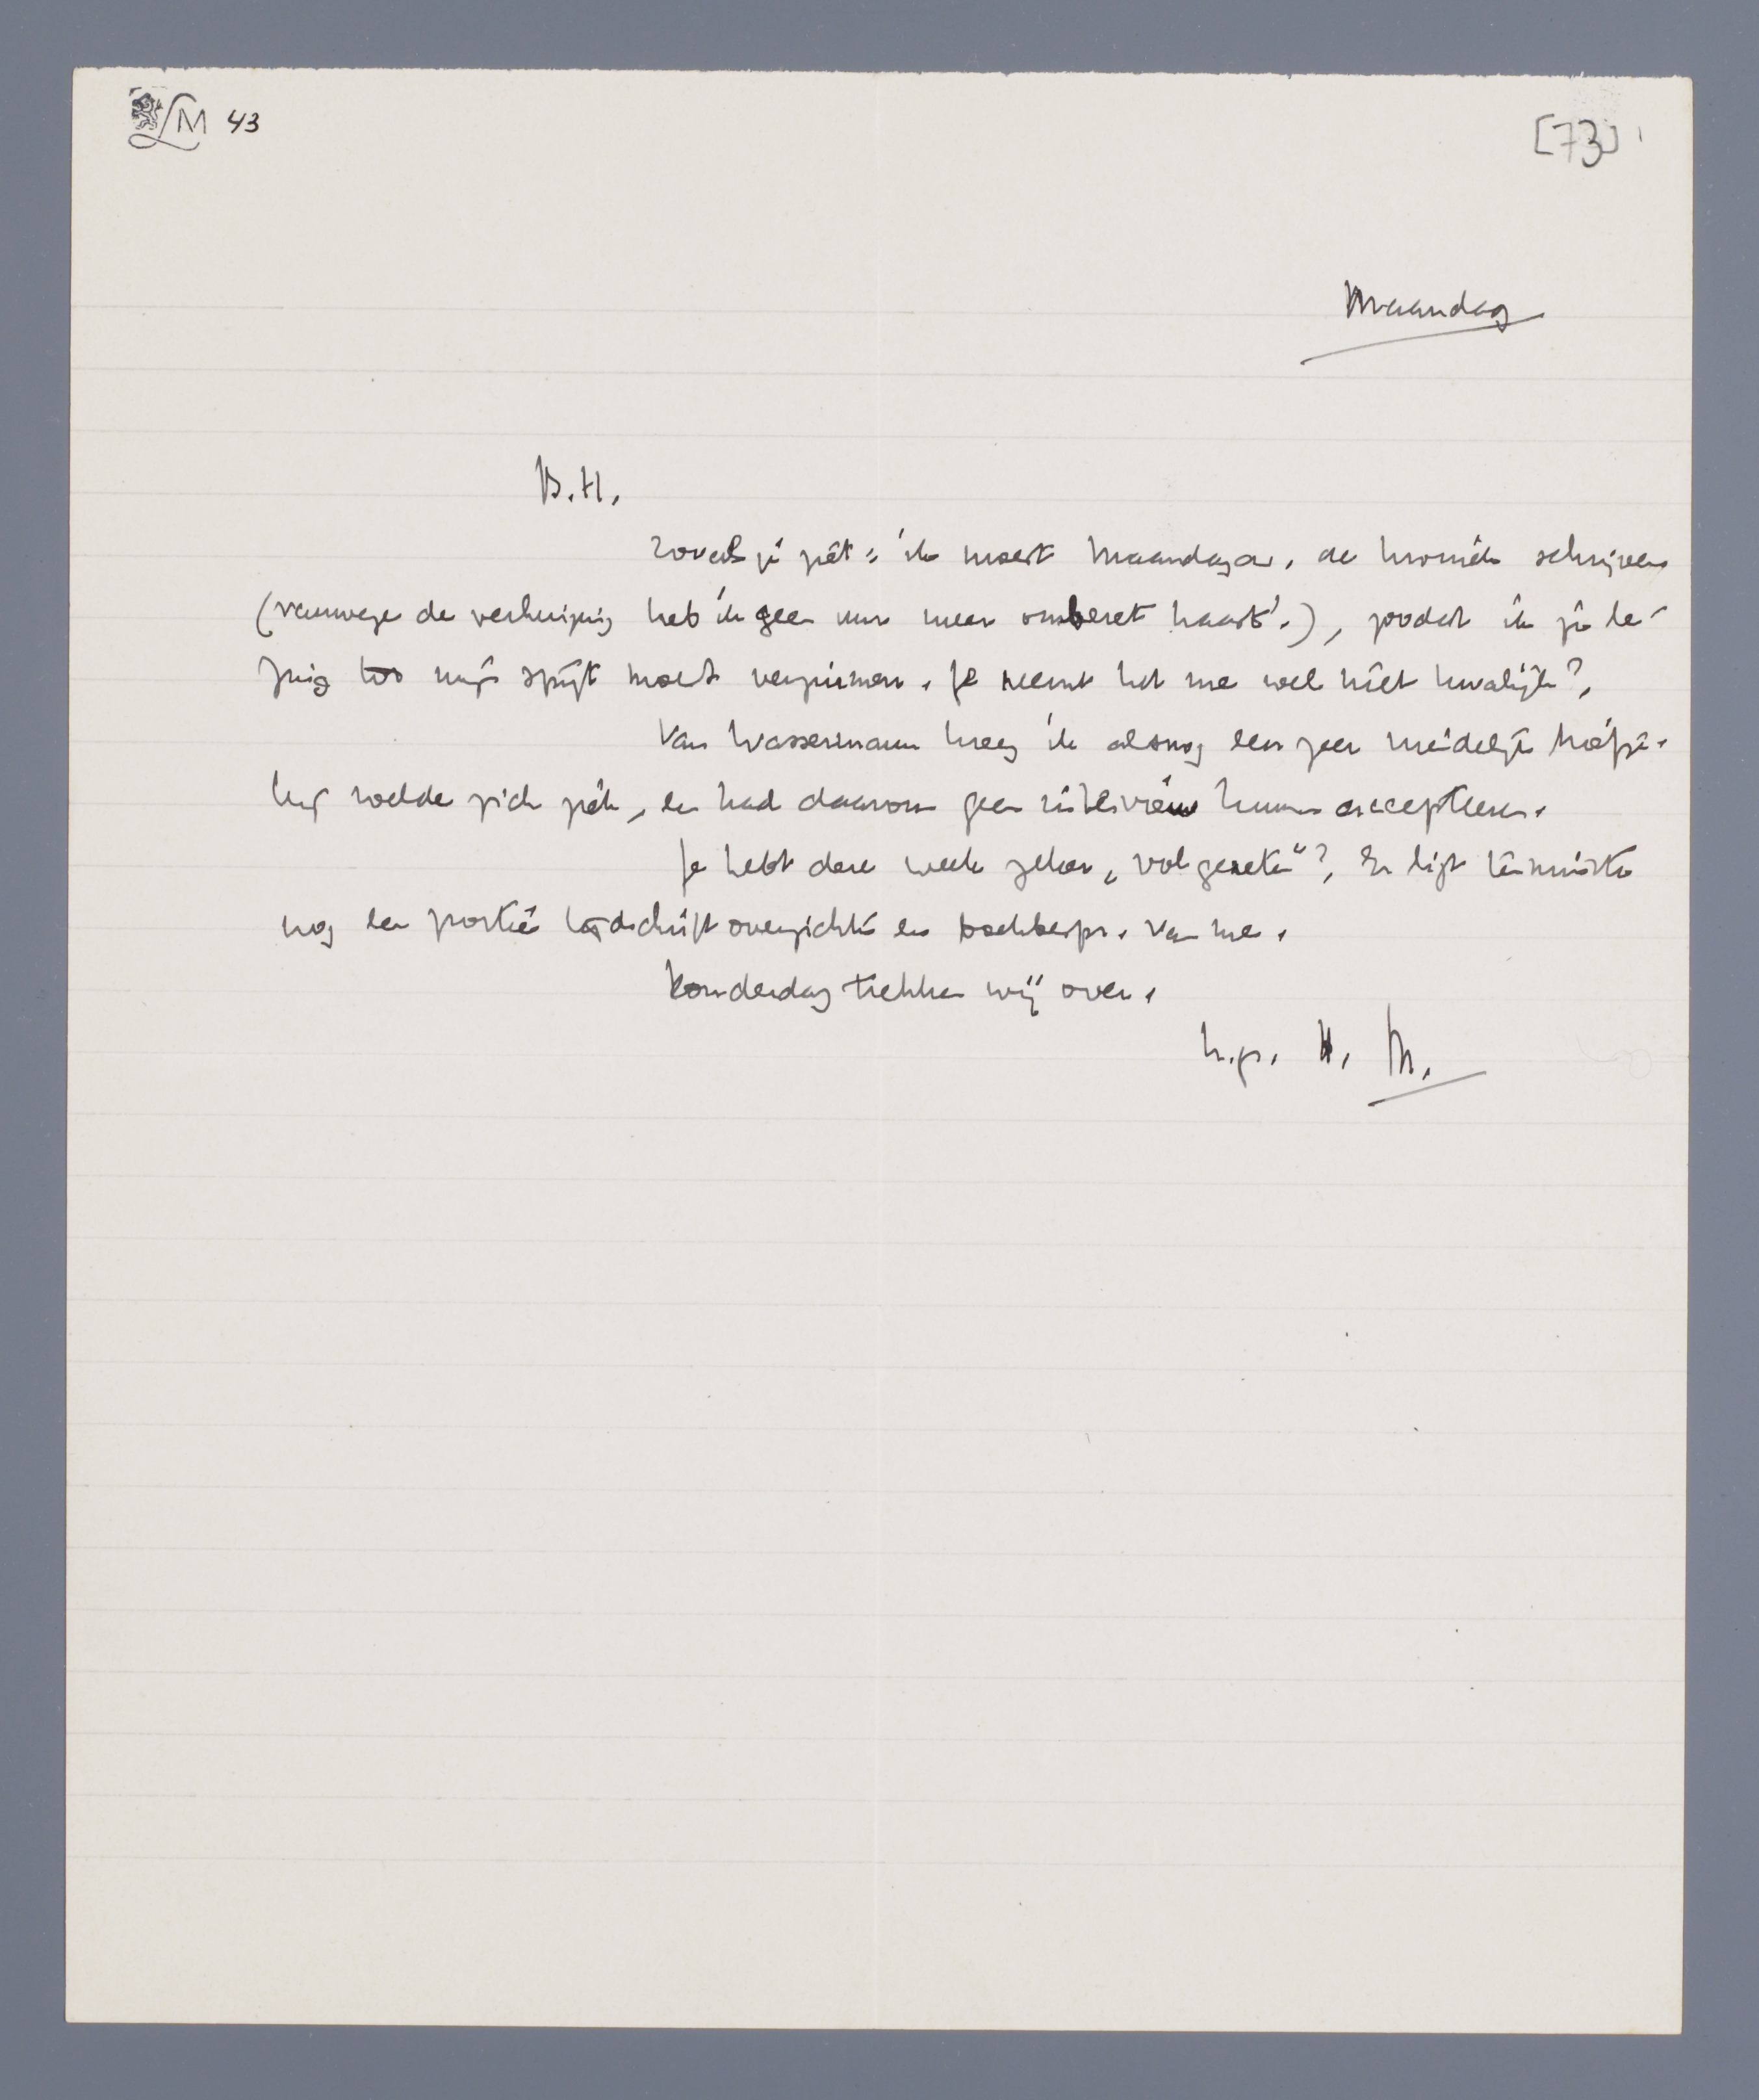 LM 43
[73]
Maandag
B.H.
Zooals je ziet: ik moest Maandagav. de kroniek schrijven
(vanwege de verhuizing heb ik geen uur meer onbezet haast!), zoodat ik je le-
zing tot mijn spijt moest verzuimen. Je neemt het me wel niet kwalijk?
Van Wassermann kreeg ik alsnog een zeer vriendelijk briefje.
Hij voelde zich ziek, en had daarom geen interview kunnen accepteeren.
Je hebt deze week zeker „volgezeten"? Er ligt tenminste
nog een portie tijdschriftoverzichten en boekbespr. van me.
Donderdag trekken wij over.
h.gr. M.